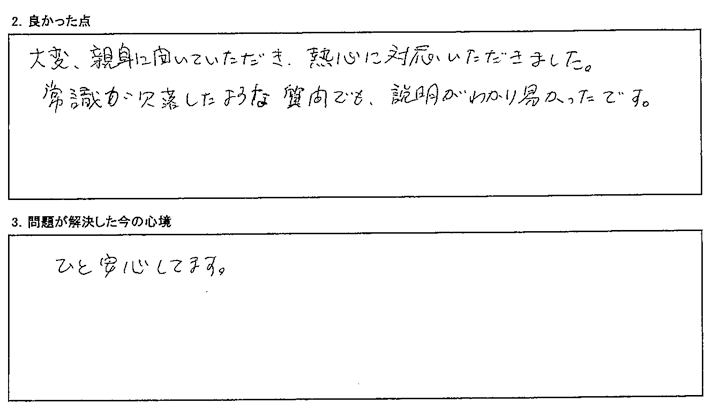 2. 良かった点
大変、親身に聞いていただき、熱心に対応いただきました。
常識が欠落したような質問でも、説明がわかり易かったです。
3. 問題が解決した今の心境
ひと安心してます。